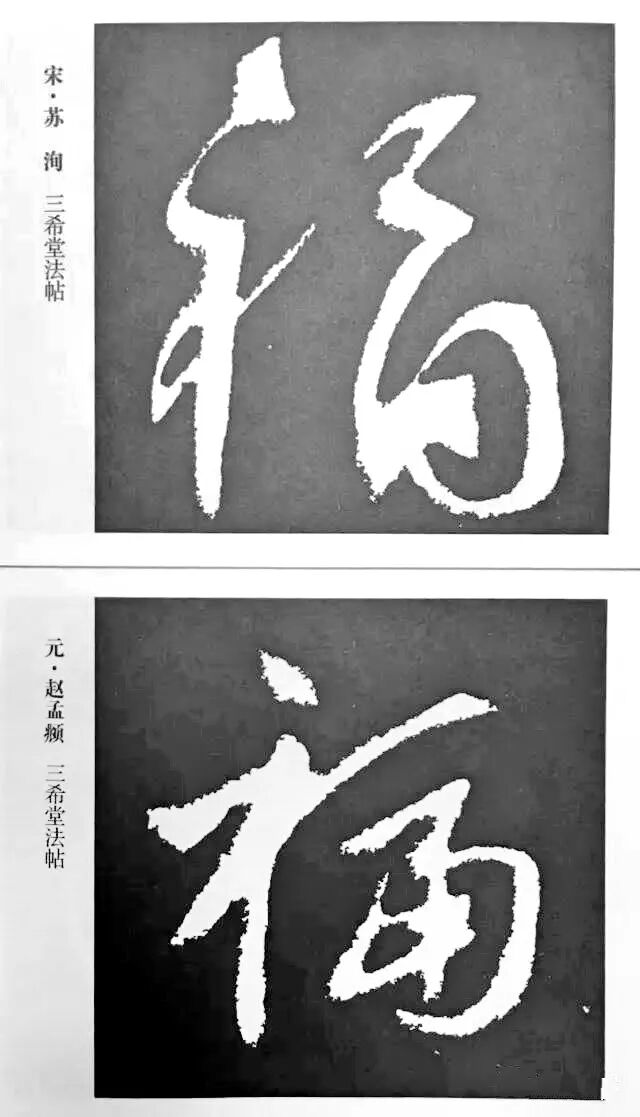 宋·苏洵 三希堂法帖
福
元·赵孟頫 三希堂法帖
福